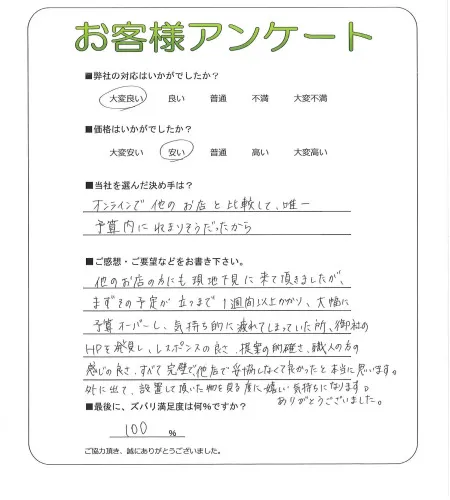 お客様アンケート
■弊社の対応はいかがでしたか？
大変良い 良い 普通 不満 大変不満
■価格はいかがでしたか？
大変安い 安い 普通 高い 大変高い
■当社を選んだ決め手は？
オンラインで他のお店と比較して、唯一
予算内に収まりそうだったから
■ご感想・ご要望などをお書き下さい。
他のお店の方にも現地下見に来て頂きましたが、
まずその予定が立つまで1週間以上かかり、大幅に
予算オーバーし、気持ち的に疲れてしまっていた所、御社の
HPを発見し、レスポンスの良さ、提案の的確さ、職人の方の
感じの良さ、すべて完璧で、他店で妥協しなくて良かったと本当に思います。
外に出て、設置して頂いた物を見る度に嬉しい気持ちになります。
ありがとうございました。
■最後に、ズバリ満足度は何%ですか？
100 %
ご協力頂き、誠にありがとうございました。